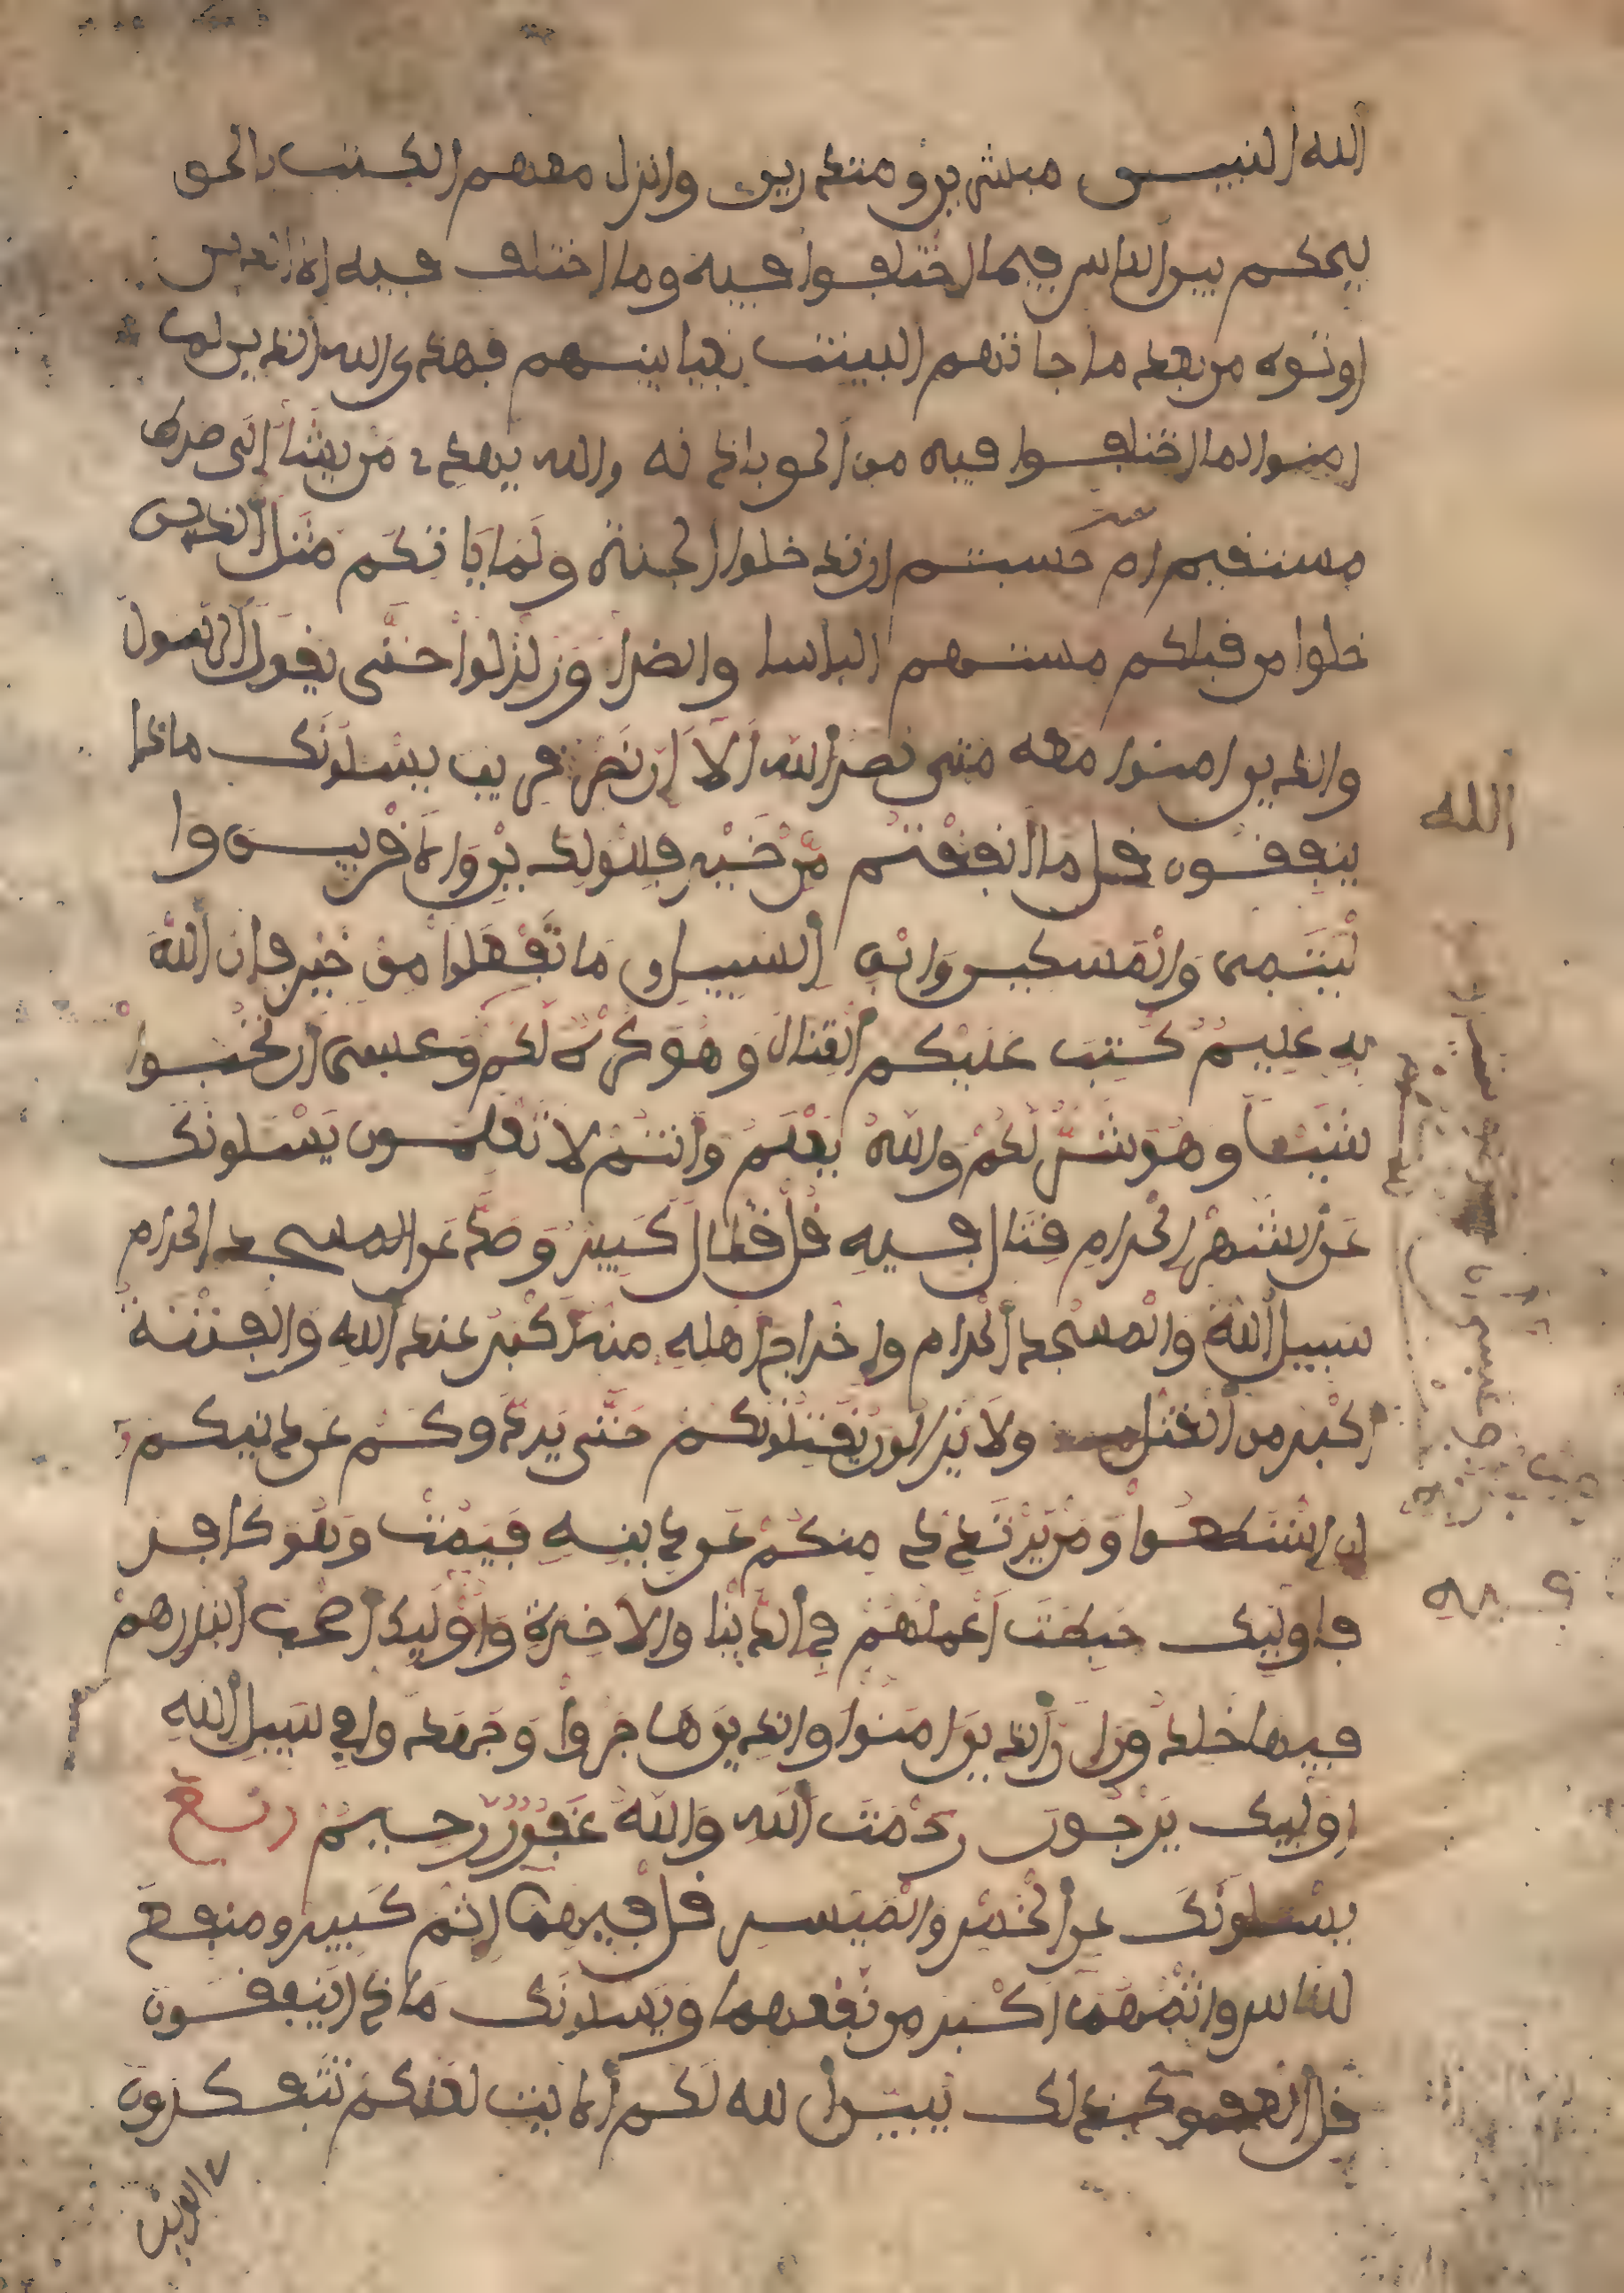 الله النبيين مبشرين ومنذرين وانزل معهم الكتب بالحق
ليحكم بين الناس فيما اختلفوا فيه وما اختلف فيه الا الذين
اوتوه من بعد ما جاتهم البينت بغيا بينهم فهدى الله الذين لما
امنوا لما اختلفوا فيه من الحق باذنه والله يهدي من يشا الى صرط
مستقيم ام حسبتم ان تدخلوا الجنة ولما ياتكم مثل الذين
خلوا من قبلكم مستهم الباسا والضرا وزلزلوا حتى يقول الرسول
والذين امنوا معه متى نصر الله الا ان نصر قريب يسلونك ماذا
ينفقون قل ما انفقتم من خير فللولدين والاقربين وا
ليتمى والمسكين وابن السبيل وما تفعلوا من خير فان الله
به عليم كتب عليكم القتال وهو كره لكم وعسى ان تحبوا
شيئا وهو شر لكم والله يعلم وانتم لا تعلمون يسلونك
عن الشهر الحرام قتال فيه قل قتال كبير وصد عن المسجد الحرام
سبيل الله والمسجد الحرام واخراج اهله منه اكبر عند الله والفتنة
اكبر من القتل ولا يزالون يقتلونكم حتى يردوكم عن دينكم
ان استطعوا ومن يرتدد منكم عن دينه فيمت وهو كافر
فاوليك حبطت اعملهم في الدنيا والاخرة واوليك اصحب النار هم
فيها خلدون ان الذين امنوا والذين هاجروا وجهدوا في سبيل الله
اوليك يرجون رحمت الله والله غفور رحيم ربع
يسلونك عن الخمر والميسر قل فيهما اثم كبير ومنفع
للناس واثمهما اكبر من نفعهما ويسلونك ماذا ينفقون
قل العفو كذلك يبين الله لكم الايت لعلكم تتفكرون
الله